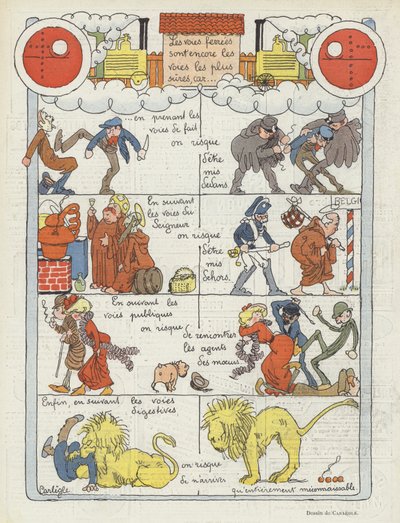 Les voies ferrées
sont encore les
voies les plus
sûres, car...
...en prenant les
voies de fait
on risque
d'être
mis
dedans.
En suivant
les voies du
Seigneur
on risque
d'être
mis
dehors.
BELGI
En suivant les
voies publiques
on risque
de rencontrer
les agents
des mœurs...
Enfin, en suivant les voies
digestives,
on risque
de n'arriver
qu'entièrement méconnaissable
Carlègle
Dessin de CARLÈGLE.